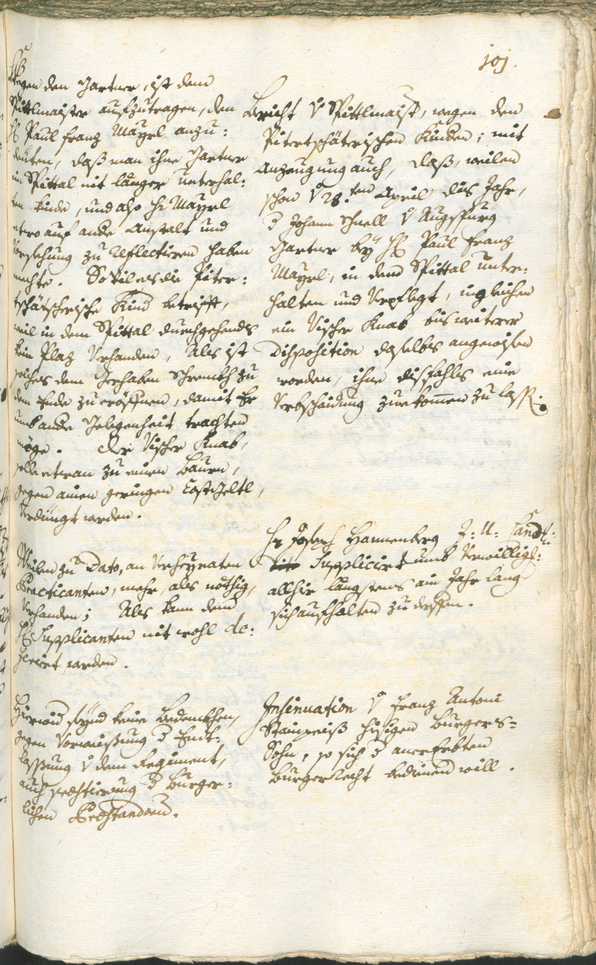 101.
Wegen den Gartner, ist dem
Spittlmaister aufzutragen, den
H: Paul Franz Mayrl anzu:
deuten, daß man ihne Gartner
im Spittal nit länger unterhal:
ten könde, und also H: Mayrl
etwo auf ande Anstalt und
Versehung zu reflectiren haben
mechte. Sovil es die Piter:
tschätscherische Kind betrifft,
weil in dem Spittal durchgehends
kein Plaz verhanden, Als ist
solches dem Gerhaben Schrenkh zu
dem Ende zu eröffnen, damit Er
umb ande Gelegenheit trachten
möge. Der Vischer Knab
solle etwan zu einen Baurn,
gegen ainen geringen Costgeltl,
verdingt werden.
Bericht v Spittlmaist, wegen den
Pitertschätscherischen Kinden; mit
Anzeugung auch, daß, weilen
schon v 28.ten April dis Jahr,
d Johann Schnell v Augspurg
Gartner bey H: Paul Franz
Mayrl, in dem Spittal unter:
halten und verpflegt, ingleichen
ein Vischer Knab bis weiterer
Disposition daselbs angewisen
worden, ihme disfahls eine
Verbschaidung zuekommen zu lass:
Weilen zu Dato, an
Practicanten, mehr, als nöthig,
verhanden; Als kann dem
H: Supplicanten nit wohl de:
feriret werden.
H: Joseph Hannenberg J: U: Cand:
Supplicirt umb Verwillig:
allhir längstens ain Jahr lang
sich aufhalten zu derffen.
Hierwid seynd keine Bedenkhen,
gegen Vorweisung d Entl:
lassung v dem Regiment,
auch præstierung d Burger:
lichen Præstandorum.
Insinuation v Franz Antoni
Stainweiß hisigen Burgers-
Sohn, so sich d anererbten
Burgerrecht bedienen will.